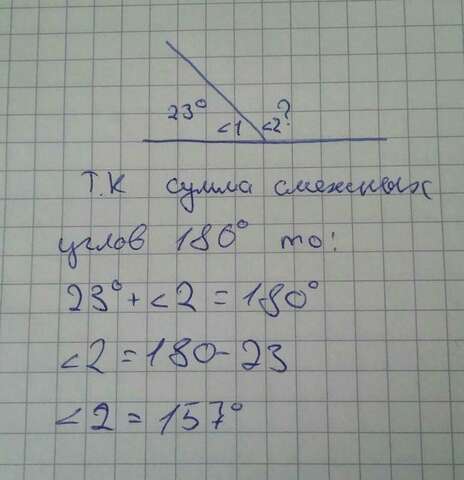 23°
<1 <2?
Т.К сумма смежных
углов 180° то:
23° + <2 = 180°
<2 = 180 - 23
<2 = 157°